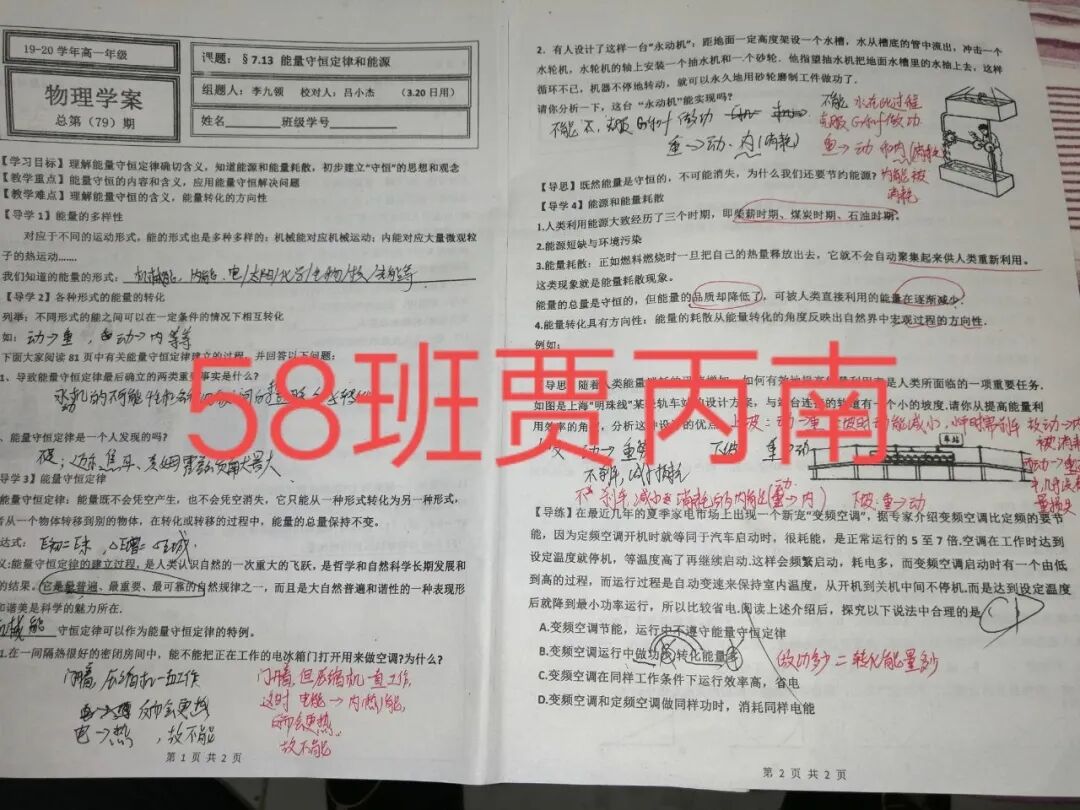 19-20 学年高一年级
物理学案
总第（79）期
课题：§7.13 能量守恒定律和能源
组题人：李九领 校对人：吕小杰 （3.20 日用）
姓名________班级学号________
【学习目标】理解能量守恒定律确切含义，知道能源和能量耗散，初步建立“守恒”的思想和观念
【教学重点】能量守恒的内容和含义，应用能量守恒解决问题
【教学难点】理解能量守恒的含义，能量转化的方向性
【导学 1】能量的多样性
对应于不同的运动形式，能的形式也是多种多样的：机械能对应机械运动；内能对应大量微观粒
子的热运动......
我们知道的能量的形式：机械能、内能、电/太阳/化学/生物/核/
【导学 2】各种形式的能量的转化
列举：不同形式的能之间可以在一定条件的情况下相互转化
如：动→重，动→内 等等
下面大家阅读 81 页中有关能量守恒定律建立的过程，并回答以下问题：
1、导致能量守恒定律最后确立的两类重要事实是什么？
能量守恒定律是一个人发现的吗？
导学 3】能量守恒定律
能量守恒定律：能量既不会凭空产生，也不会凭空消失，它只能从一种形式转化为另一种形式，
者从一个物体转移到别的物体，在转化或转移的过程中，能量的总量保持不变。
达式：E初=E末，
义:能量守恒定律的建立过程，是人类认识自然的一次重大的飞跃，是哲学和自然科学长期发展和
的结果。它是最普遍、最重要、最可靠的自然规律之一，而且是大自然普遍和谐性的一种表现形
和谐美是科学的魅力所在.
机械能 守恒定律可以作为能量守恒定律的特例。
1.在一间隔热很好的密闭房间中，能不能把正在工作的电冰箱门打开用来做空调?为什么?
门开着，压缩机一直工作
反而会更热
电→热，故不能
门开着，但压缩机一直工作
这时 电能→内(热)能，
反而会更热
故不能
第 1 页 共 2 页
2．有人设计了这样一台“永动机”：距地面一定高度架设一个水槽，水从槽底的管中流出，冲击一个
水轮机，水轮机的轴上安装一个抽水机和一个砂轮．他指望抽水机把地面水槽里的水抽上去，这样
循环不已，机器不停地转动，就可以永久地用砂轮磨制工件做功了．
请你分析一下，这台 “永动机”能实现吗？
不能
重→动、内(消耗)
不能 水在此过程
克服G和f做功
重→动 和内(消耗)
内能被
消耗
【导思】既然能量是守恒的，不可能消失，为什么我们还要节约能源？
【导学 4】能源和能量耗散
1.人类利用能源大致经历了三个时期，即柴薪时期、煤炭时期、石油时期。
2.能源短缺与环境污染
3.能量耗散：正如燃料燃烧时一旦把自己的热量释放出去，它就不会自动聚集起来供人类重新利用。
这类现象就是能量耗散现象。
能量的总量是守恒的，但能量的品质却降低了，可被人类直接利用的能量在逐渐减少．
4.能量转化具有方向性：能量的耗散从能量转化的角度反映出自然界中宏观过程的方向性．
例如：
58班贾丙南
【导思】随着人类能量消耗的
如何有效地提高能量利用率是人类所面临的一项重要任务．
如图是上海“明珠线”某轻轨车站的设计方案，与站台连接的轨道有一个小的坡度.请你从提高能量利
用效率的角度，分析这种设计的优点
车站
下坡 重→动
下坡:重→动
【导练】在最近几年的夏季家电市场上出现一个新宠“变频空调”，据专家介绍变频空调比定频的要节
能，因为定频空调开机时就等同于汽车启动时，很耗能，是正常运行的 5 至 7 倍.空调在工作时达到
设定温度就停机，等温度高了再继续启动.这样会频繁启动，耗电多，而变频空调启动时有一个由低
到高的过程，而运行过程是自动变速来保持室内温度，从开机到关机中间不停机.而是达到设定温度
后就降到最小功率运行，所以比较省电.阅读上述介绍后，探究以下说法中合理的是
A.变频空调节能，运行中不遵守能量守恒定律
B.变频空调运行中做功少转化能量多
做功多少=转化能量多少
C.变频空调在同样工作条件下运行效率高，省电
D.变频空调和定频空调做同样功时，消耗同样电能
第 2 页 共 2 页